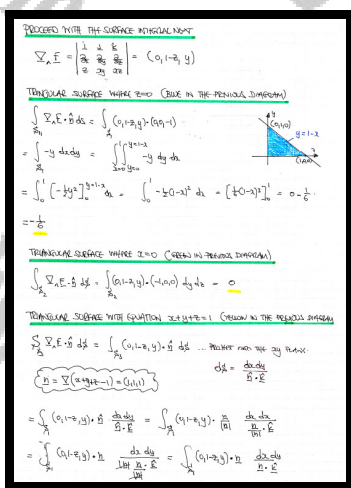 PROCEED WITH THE SURFACE INTEGRAL NEXT
∇∧F = | i j k ; ∂/∂x ∂/∂y ∂/∂z ; z xy xz | = (0, 1-z, y)
TRIANGULAR SURFACE WHERE z=0 (BLUE IN THE PREVIOUS DIAGRAM)
∫_{S₁} ∇∧F · n̂ dS = ∫_{S₁} (0,1-z,y)·(0,0,-1)
= ∫_{S₁} -y dx dy = ∫_{x=0}^{1} ∫_{y=0}^{y=1-x} -y dy dx
y
(0,1,0)
y=1-x
(1,0,0)
= ∫₀¹ [-½y²]₀^{y=1-x} dx = ∫₀¹ -½(1-x)² dx = [⅙(1-x)³]₀¹ = 0 - ⅙
= -⅙
TRIANGULAR SURFACE WHERE x=0 (GREEN IN PREVIOUS DIAGRAM)
∫_{S₂} ∇∧F · n̂ dS = ∫_{S₂} (0,1-z,y)·(-1,0,0) dy dz = 0
TRIANGULAR SURFACE WITH EQUATION x+y+z=1 (YELLOW IN THE PREVIOUS DIAGRAM
∫_{S₃} ∇∧F · n̂ dS = ∫_{S₃} (0,1-z,y)·n̂ dS ... PROJECT ONTO THE xy PLANE
dS = dx dy / n̂·k
n = ∇(x+y+z-1) = (1,1,1)
= ∫ (0,1-z,y)·n̂ dx dy / n̂·k = ∫ (0,1-z,y)· n/|n| dx dx / (n/|n|·k)
= ∫ (0,1-z,y)·n / |n| dx dy / (n·k / |n|) = ∫ (0,1-z,y)·n dx dy / n·k